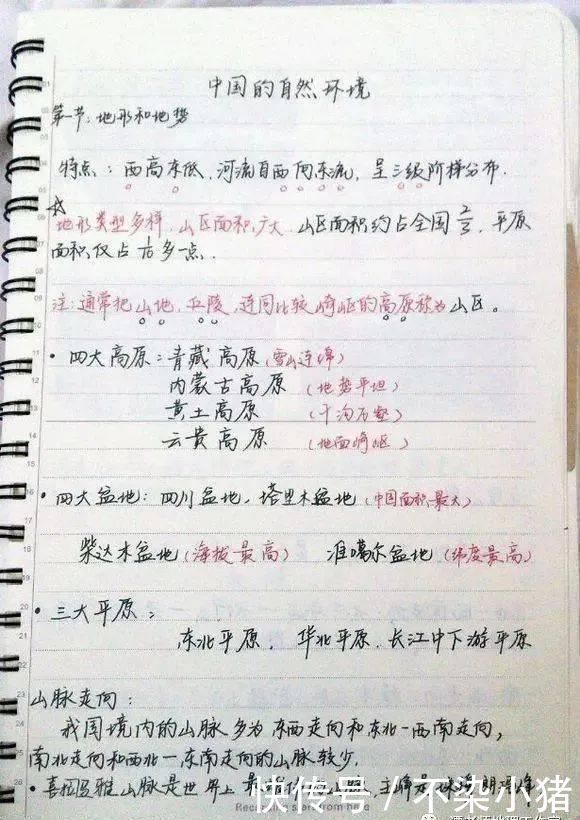 中国的自然环境
第一节:地形和地势
特点:西高东低,河流自西向东流,呈三级阶梯分布.
地形类型多样,山区面积广大.山区面积约占全国2/3,平原
面积仅占1/10多一点.
注:通常把山地,丘陵,连同比较崎岖的高原称为山区。
• 四大高原:青藏高原(雪山连绵)
内蒙古高原 (地势平坦)
黄土高原 (千沟万壑)
云贵高原 (地面崎岖)
• 四大盆地:四川盆地,塔里木盆地(中国面积最大)
柴达木盆地(海拔最高) 准噶尔盆地(纬度最高)
• 三大平原:
东北平原,华北平原.长江中下游平原
山脉走向:
我国境内的山脉多为东西走向和东北-西南走向,
南北走向和西北-东南走向的山脉较少.
• 喜玛拉雅山脉是世界上最
主峰是
快传号 / 不染小猪